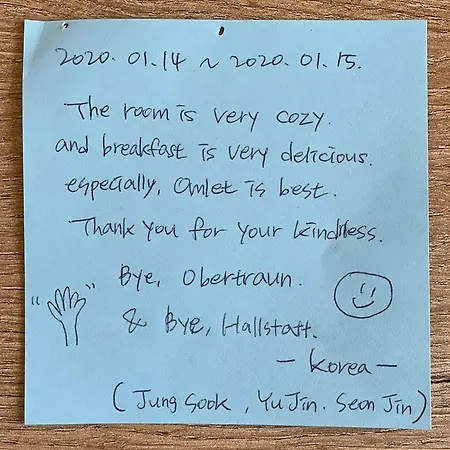 2020. 01.14 ~ 2020. 01.15.
The room is very cozy.
and breakfast is very delicious.
especially, Omlet is best.
Thank you for your kindness.
Bye, Obertraun.
& Bye, Hallstatt.
- Korea -
(Jung Sook, YuJin. Seon Jin)